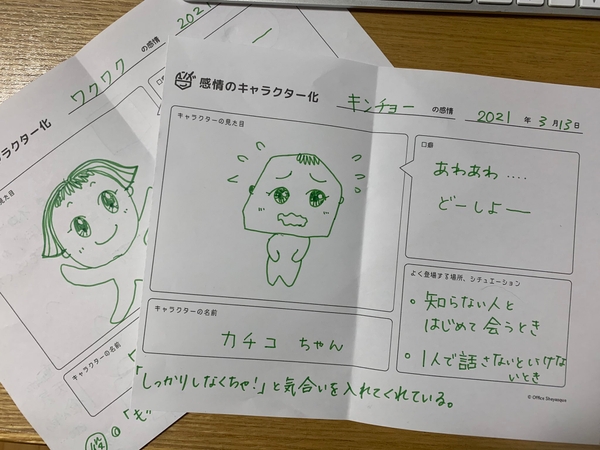 感情のキャラクター化
キンチョー の感情
2021 年 3 月 13 日
キャラクターの見た目
口癖
あわあわ....
どーしよー
よく登場する場所、シチュエーション
・知らない人と
はじめて会うとき
・1人で話さないといけな
いとき
キャラクターの名前
カチコ ちゃん
© Office Shiyanqus
「しっかりしなくちゃ!」と気合いを入れてくれている。
ワクワク の感情
2021
ラクター化
キャラクターの名前